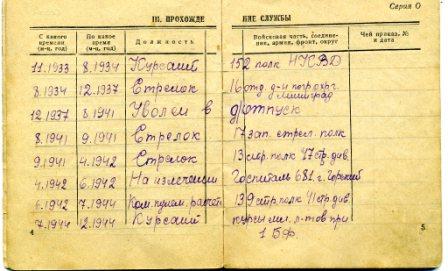 Серия О
III. ПРОХОЖДЕНИЕ СЛУЖБЫ
С какого времени (м-ц, год) По какое время (м-ц, год) Должность Войсковая часть, соединение, армия, фронт, округ Чей приказ, № и дата
11.1933 8.1934 Курсант 152 полк НКВД
8.1934 12.1937 Стрелок 16 отд.
Ленинград
12.1937 8.1941 Уволен в отпуск
8.1941 9.1941 Стрелок 17 зап. стрел. полк
9.1941 4.1942 Стрелок 13 полк 47 див.
4.1942 6.1942 На излечении Госпиталь 681 г. Горький
6.1942 7.1944 Ком. пулем. расчет 139 стр. полк 41 стр. див.
7.1944 2.1944 Курсант курсы мл. л-тов при
1 БФ
4 5